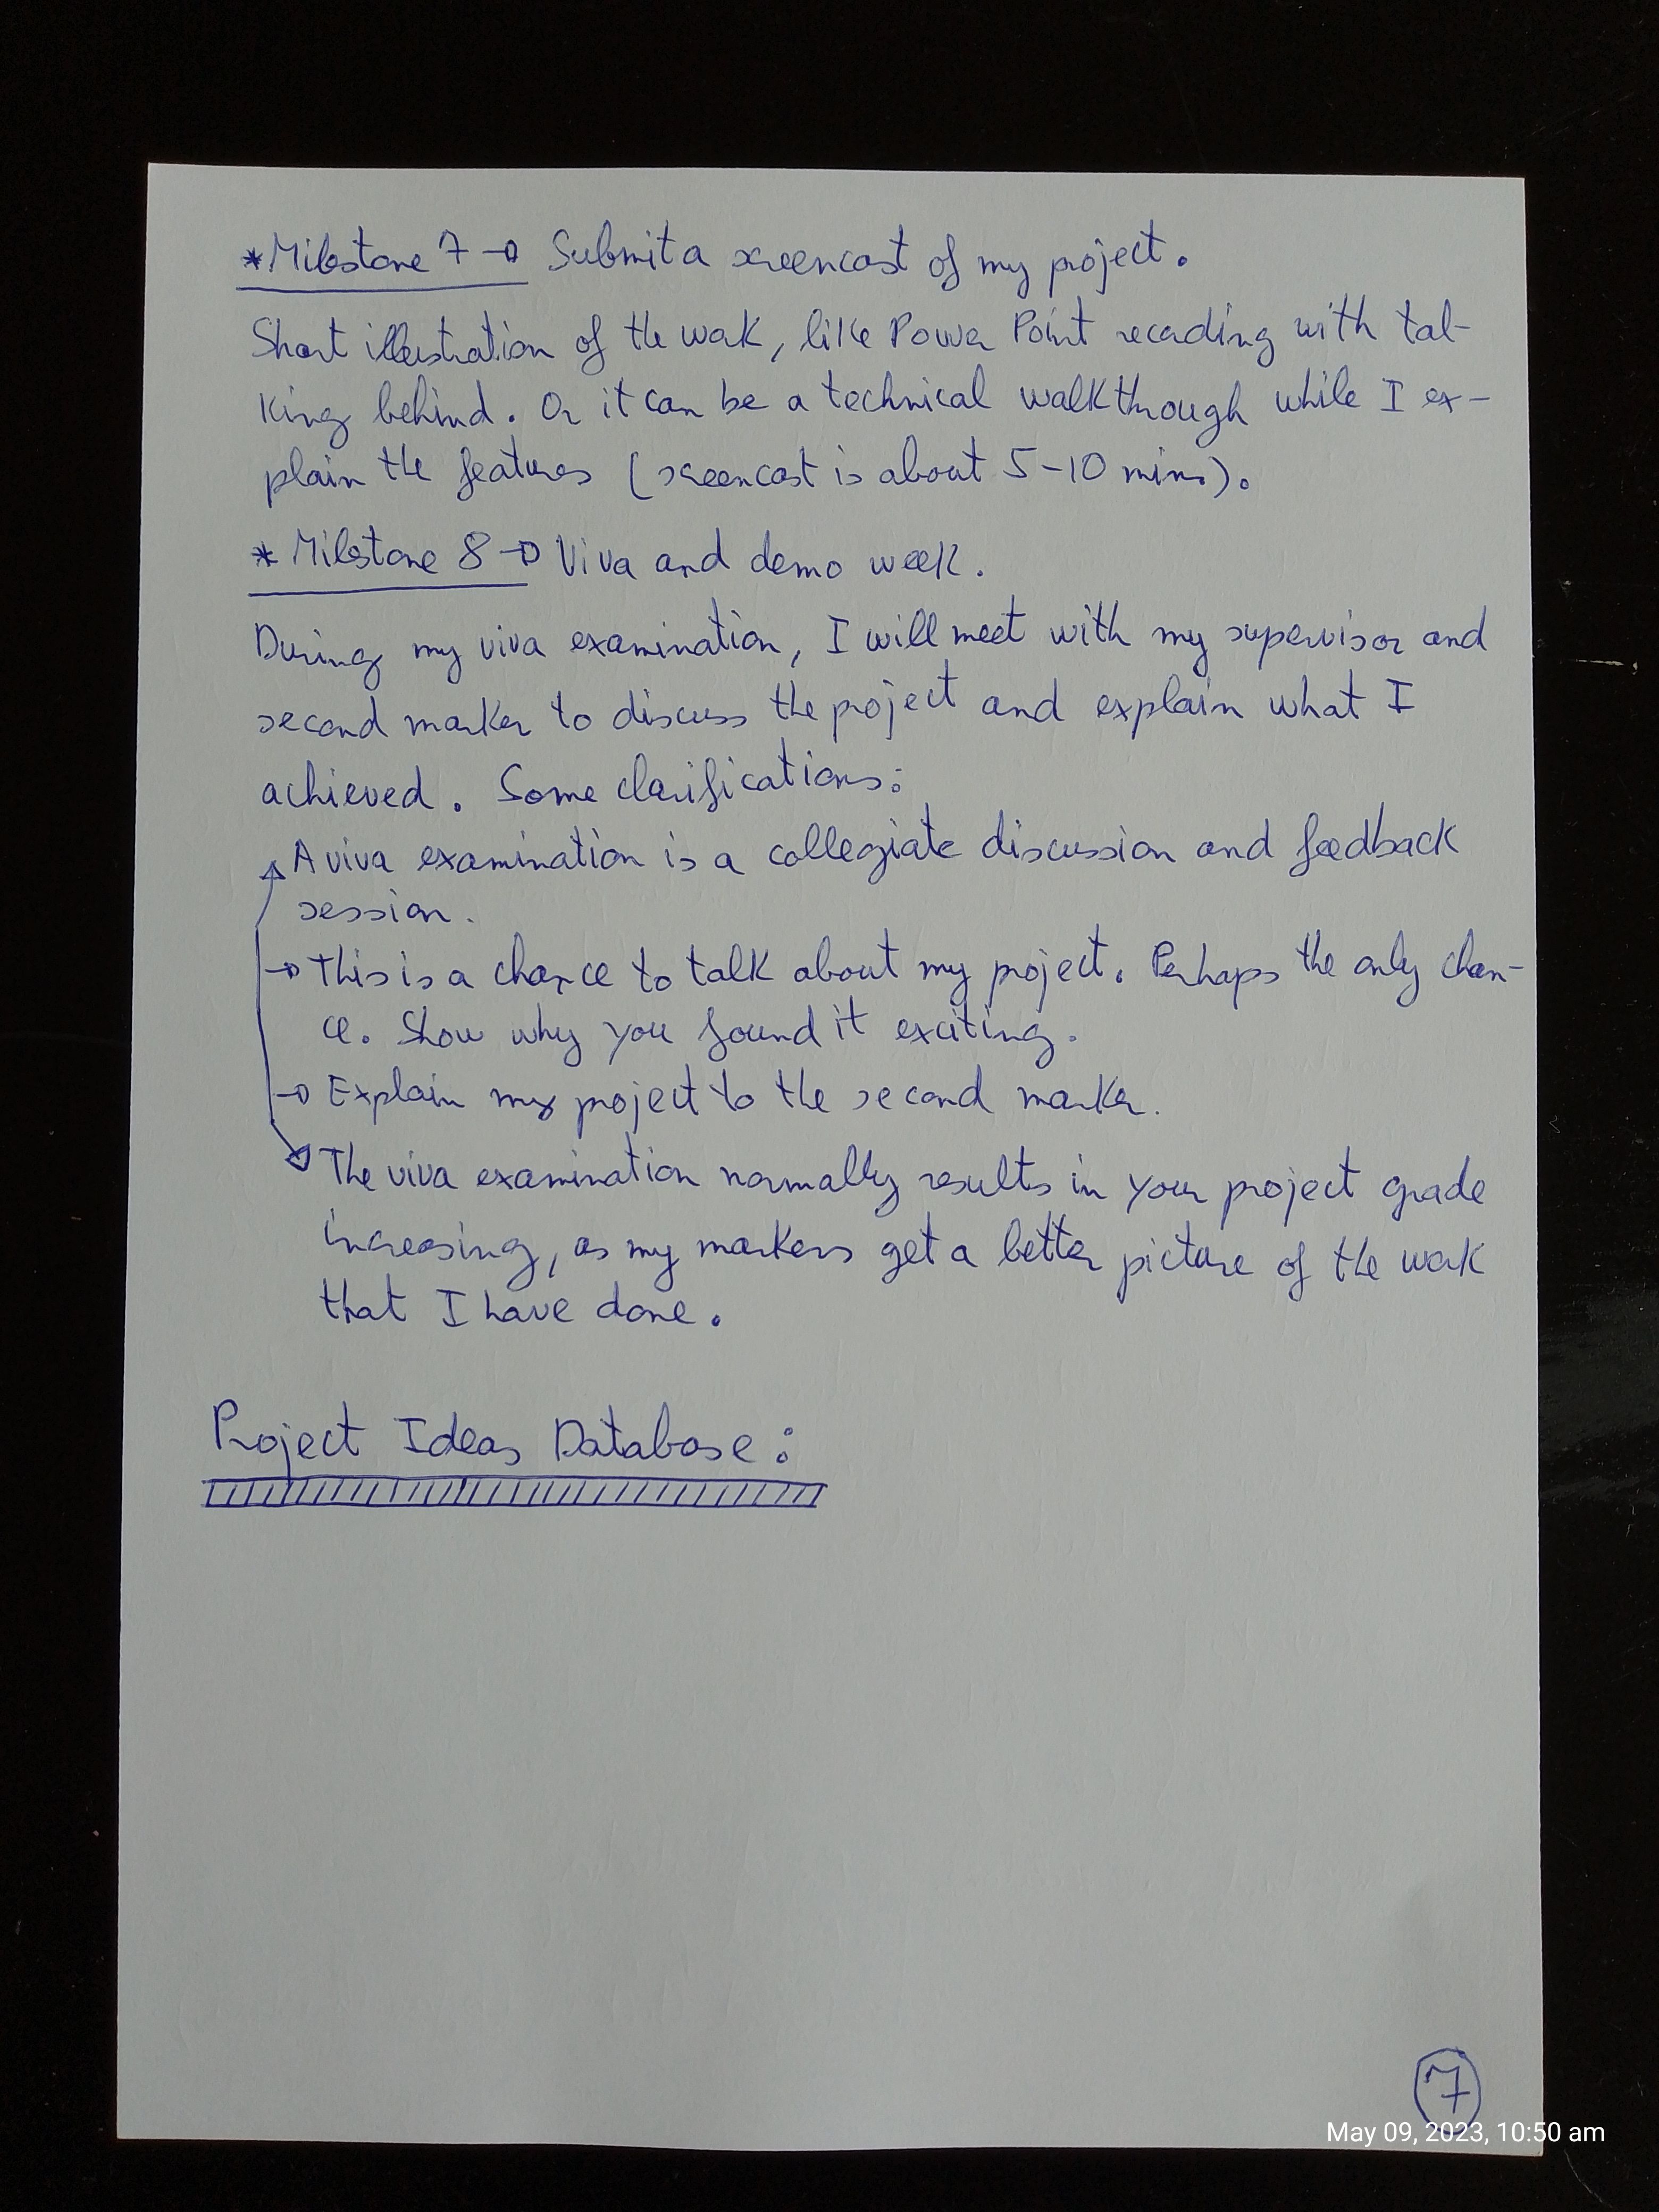 *Milestone 7 → Submit a screencast of my project.
Short illustration of the work, like Power Point recording with tal-
king behind. Or it can be a technical walkthrough while I ex-
plain the features (screencast is about 5-10 mins).
* Milestone 8 → Viva and demo week.
During my viva examination, I will meet with my supervisor and
second marker to discuss the project and explain what I
achieved. Some clarifications:
A viva examination is a collegiate discussion and feedback
session.
→ This is a chance to talk about my project. Perhaps the only chan-
ce. Show why you found it exciting.
→ Explain my project to the second marker.
The viva examination normally results in your project grade
increasing, as my markers get a better picture of the work
that I have done.
Project Ideas Database:
7
May 09, 2023, 10:50 am